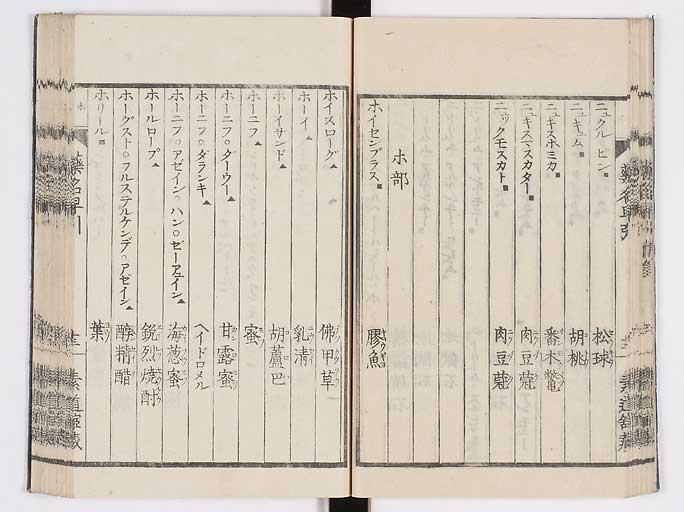 ニュクル ピン 松球
ニュキュム 胡桃
ニュキスホミカ 番木鼈
ニュキスマスカター 肉豆蔲
ニックモスカト 肉豆蔲
ホ部
ホイセンブラス 膠鰾
ホイスローグ 佛甲草
ホーイ 乳清
ホーイサンド 胡蘆巴
ホーニフ 蜜
ホーニフ○ダーウー 甘露蜜
ホーニフ○ダランキ ヘイドロメル
ホーニフ○アゼイン○ハン○ゼーアユイン 海葱蜜
ホールロープ 鋭烈焼酎
ホーグスト○フルステルケンデ○アゼイン 醇精醋
ホリール 葉
藥名早引